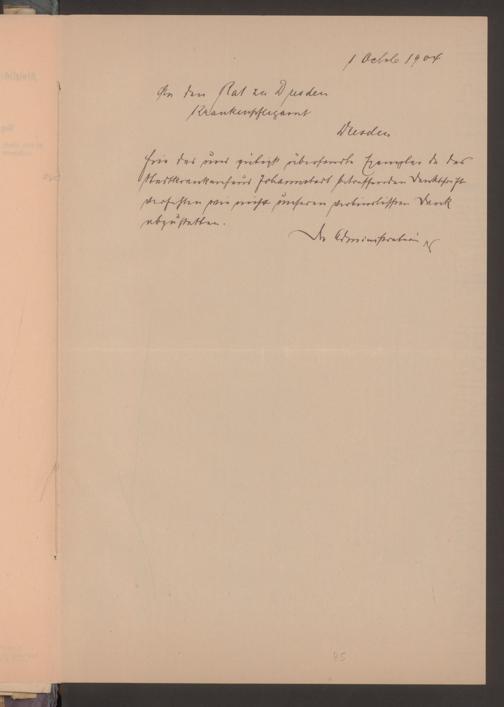 1 Octob 1904
An den Rat zu Dresden
Krankenpflegamt
Dresden
Für das uns gütigst übersandte Exemplar der das
Stadtkrankenhaus Johannstadt betreffenden Denkschrift
verfehlen wir nicht unseren verbindlichsten Dank
abzustatten.
Die Administration